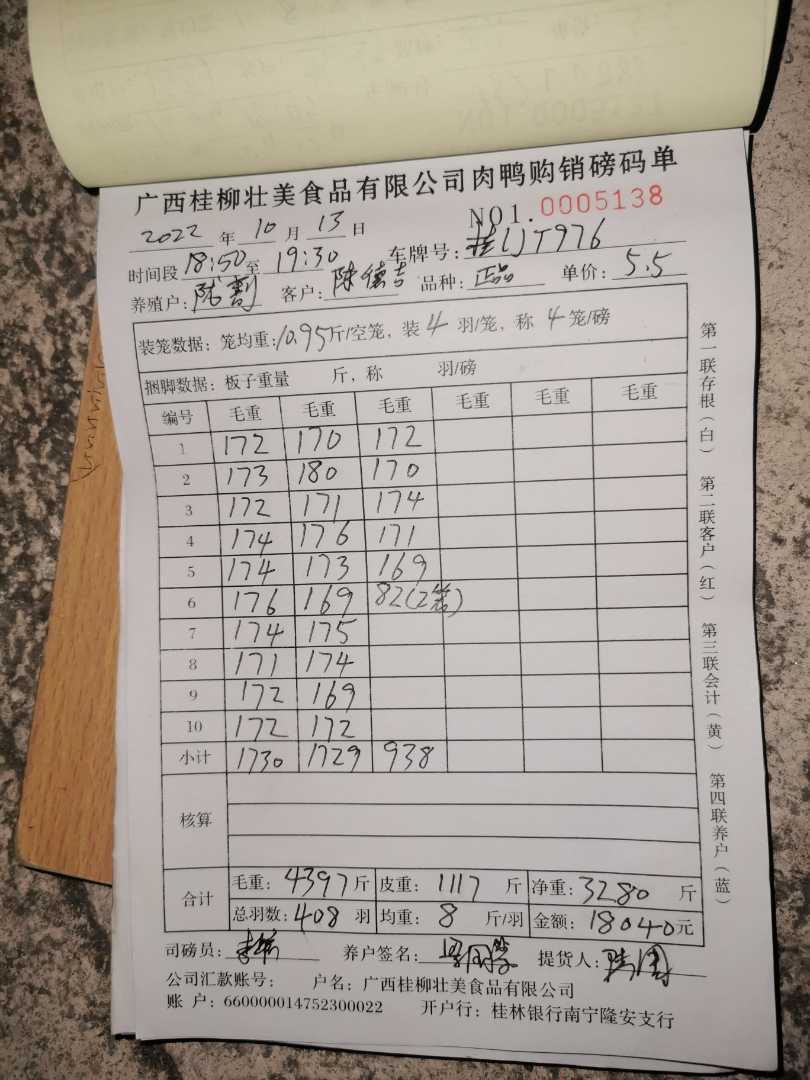 广西桂柳壮美食品有限公司肉鸭购销磅码单
NO1.0005138
2022 年 10 月 13 日
时间段 18:50 至 19:30 车牌号:桂JT976
养殖户: 客户:陈德吉 品种:正品 单价:5.5
装笼数据:笼均重:10.95斤/空笼,装 4 羽/笼,称 4 笼/磅
捆脚数据:板子重量 斤,称 羽/磅
编号 毛重 毛重 毛重 毛重 毛重 毛重
1 172 170 172
2 173 180 170
3 172 171 174
4 174 176 171
5 174 173 169
6 176 169 82(2笼)
7 174 175
8 171 174
9 172 169
10 172 172
小计 1730 1729 938
核算
合计 毛重:4397斤 皮重:1117 斤 净重:3280 斤
总羽数:408 羽 均重:8 斤/羽 金额:18040元
司磅员: 养户签名: 提货人:
公司汇款账号: 户名:广西桂柳壮美食品有限公司
账 户:660000014752300022 开户行:桂林银行南宁隆安支行
第一联存根(白) 第二联客户(红) 第三联会计(黄) 第四联养户(蓝)